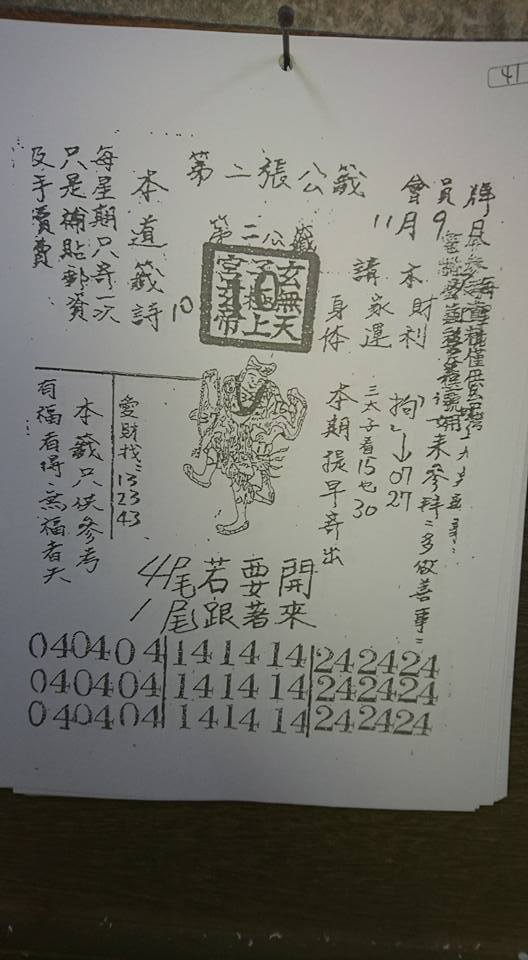 41
第二張公籤
第二公籤
玄無天
子極上
宮 帝
會員
11月9
本月財利
請家運
身体
10
本道籤詩
每星期只寄一次
只是補貼郵資
及手費費
拘〻→07
27
來參拜〻多做善事〻
三太子看15屯30
本期提早寄出
愛財找〻13
23
43
本籤只供參考
有福者得〻無福者失
4尾若要開
1尾跟著來
040404 141414 242424
040404 141414 242424
040404 141414 242424